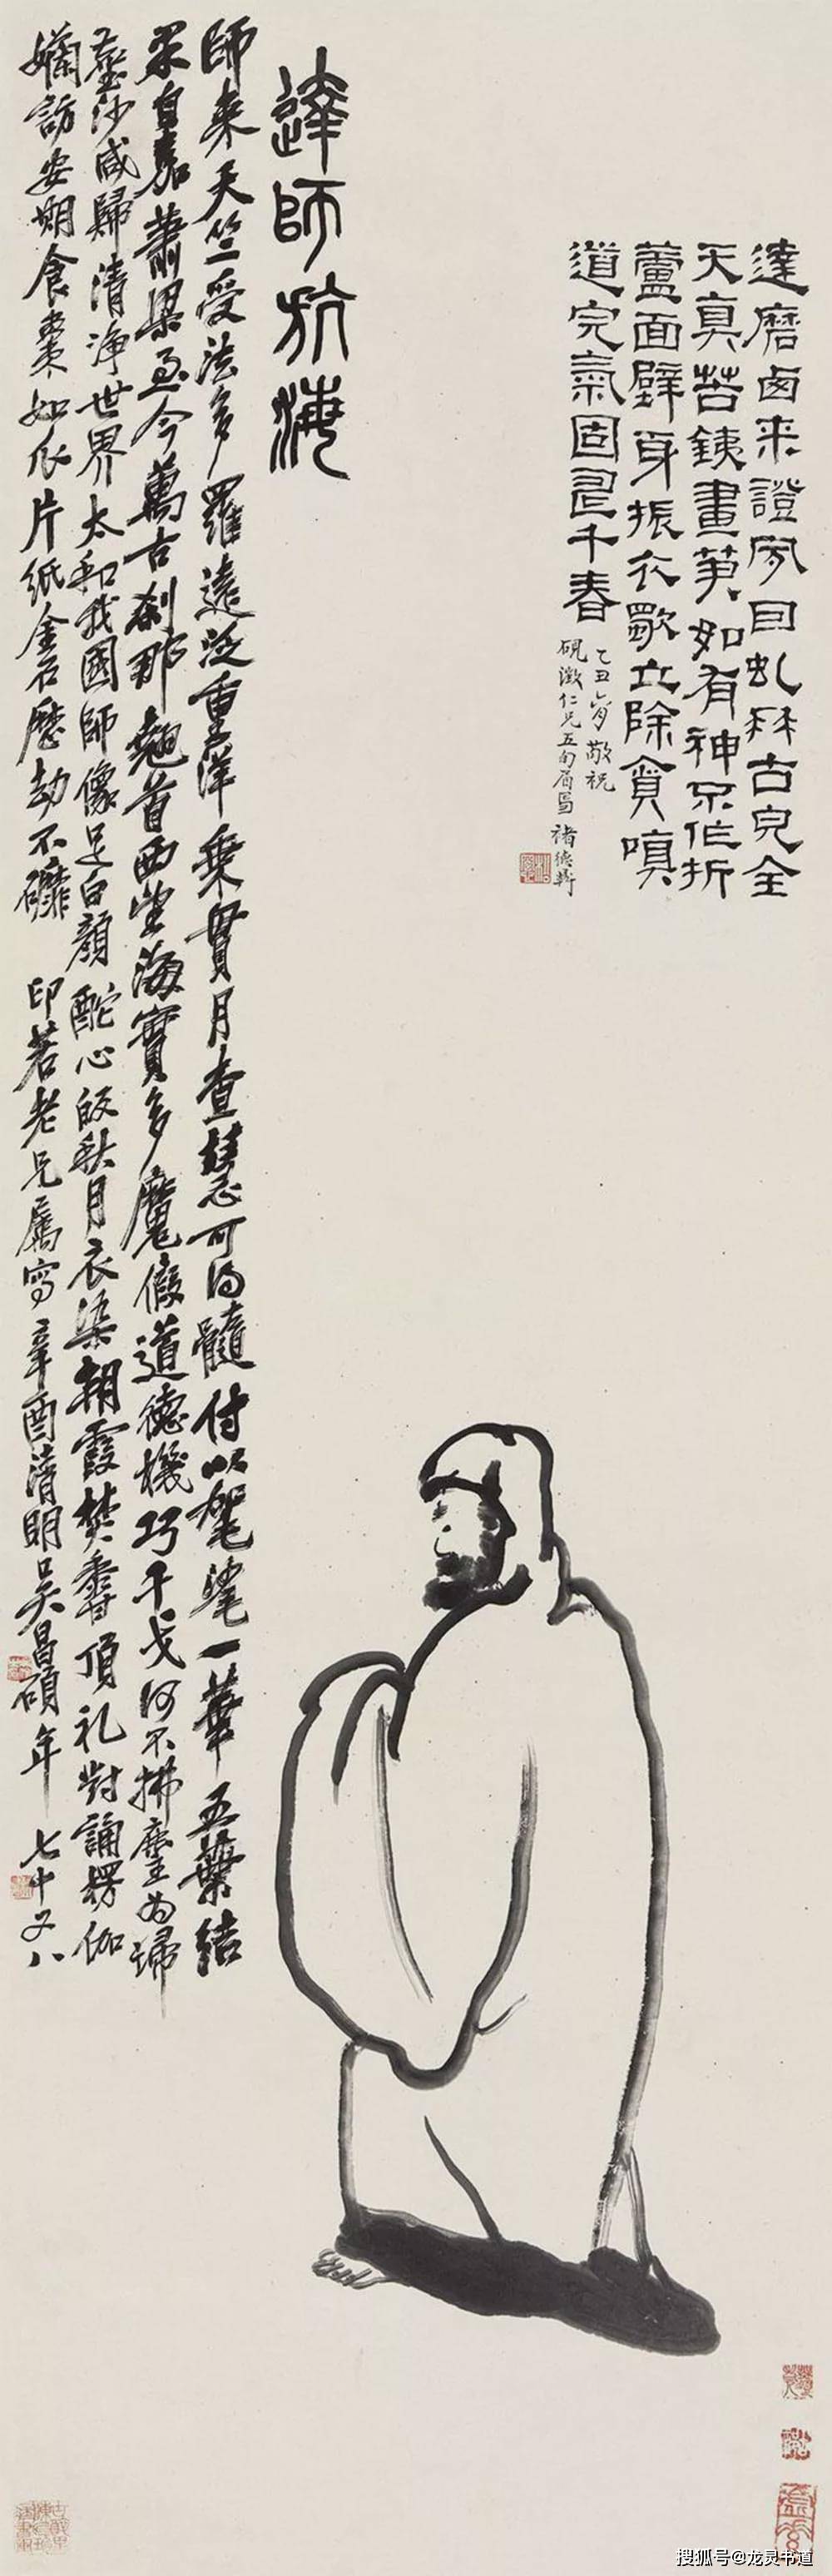 達磨西来證夙因虬枅古皃全
天真苦銕畫筆如有神不作折
蘆面壁身振衣歌立除貪嗔
道完氣固是千春
乙丑肯敬祝
硯澂仁兄五旬屬富褚德彝
達師航海
師来天竺受法多羅遠泛重洋乗貫月查慧可得髓付以袈裟一華五葉結
果自嘉蕭梁至今萬古刹那翹首西望海實多魔假道德機巧干戈何不拂塵為掃
塵沙咸歸清淨世界太和我國師像足白顏酡心皎秋月衣染朝霞焚香頂礼對誦楞伽
嬾訪安期食棗如瓜片紙金石歷劫不礳 印若老兄屬寫辛酉清明吳昌碩年七十又八
搜狐号@龙灵书道